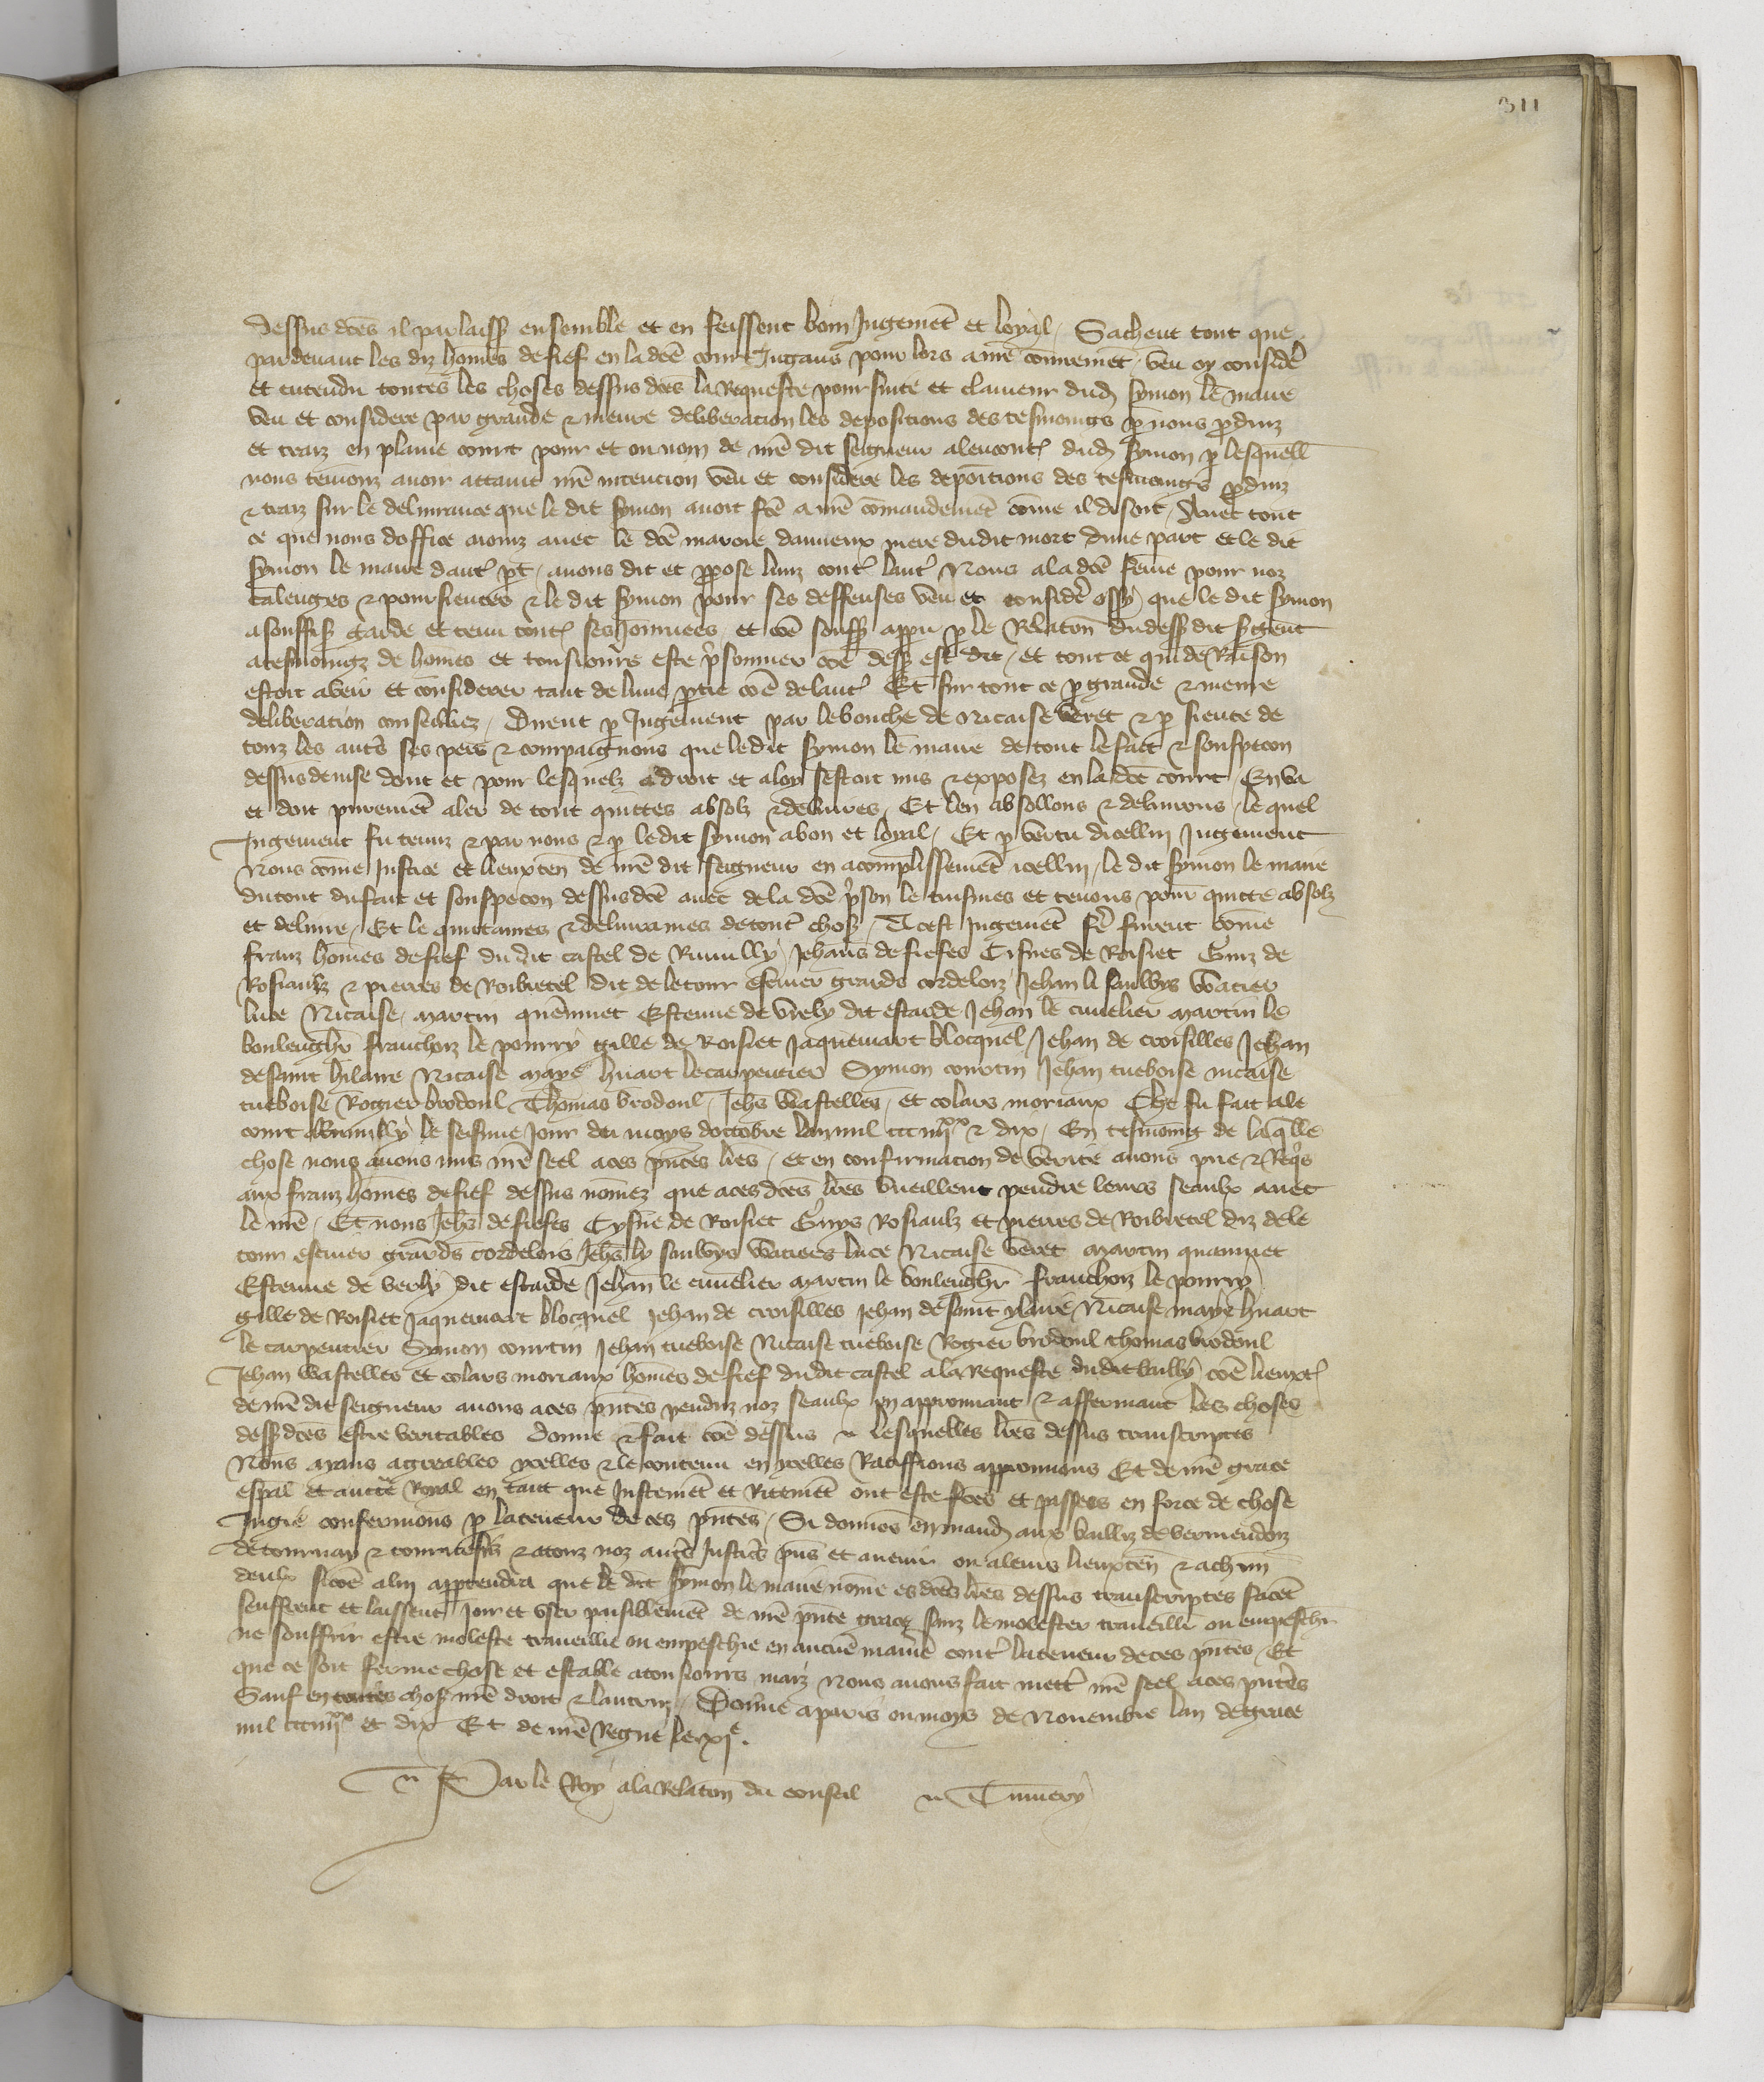 311
dessus dces il parlaiss ensemble et en feissent bon Jugemet et loyal / Sachent tout que
pardevant les diz homes de fief en la dce court Jugans pour lors a nre conjuremet veu oy consider
et entendu toutes les choses dessus dces la Requeste poursuite et clameur dud Symon le maire
veu et considere par grande & meure deliberacion les deposicions des tesmoings p nous produiz
et traiz en plaine court pour et ou nom de nre dit seigneur alencont dud Symon p lesquelz
nous tenions avoir attaint nre intencion veu et considere les depositions des tesmoings produiz
& traiz sur le delivrance que le dit Symon avoit fce a nre comandement come il disoit / Avec tout
ce que nous doffice avec le dce maroie mere dudit mort dune part et le dit
Symon le maire daut pt / avons dit et propose luns cont laut Nous a la dce feme pour noz
calenges & poursieutes & le dit Symon pour ses deffenses veu et consider ossy que le dit Symon
a souffis garde et tenu tout ses Journees et coe souff appu p le Relation du dess dit sgent
a tesmoings de homes et tousiours este prisonnier coe dess est dit / et tout ce qui de Raison
estoit a veir et considerer tant de lune ptie coe de laut Et sur tout ce p grande & meure
deliberation conseilliez / Dirent p Jugement par le bouche de Nicaise Veret & p sieute de
touz les auts ses pers & compaignons que ledit Symon le maire de tout le fait & souspecon
dessus devise dont et pour lesquelz a droit et a loy sestoit mis & exposez en la dce court / En va
et doit purement aler de tout quittes absolz & delivres / Et len absollons & delivrons / le quel
Jugement fu tenuz & par nous & p ledit Symon a bon et loyal / Et p vertu dicellui Jugement
Nous come Justice et lieuxten de nre dit seigneur en acomplissement icellui / le dit Symon le maire
du tout du fait et souspecon dessusdce avec de la dce prison le meismes et tenons pour quitte absolz
et delivre / Et le quictames & delivrames de tout chos / A cest Jugement fe furent come
frans homes de fief du dit castel de Rumilly Jehans de fiefes Cisnes de Roisiet Guiz de
Rosiaulz & pierres de Roibretel dit de le tour escuier gerards cordelois Jehan li sauvvys Watier
luce Nicaise / martin quemuet Estenne de Vrely dit estarde Jehan le cuvelier martin le
boulengher franchoiz le pourry gille de Roisiet Jaquemart blocquel Jehan de croisilles Jehan
de saint hilaire Nicaise maye huart le carpentier Symon courtin Jehan tueboise nicaise
tueboise Rogier brodoul Thomas brodoul / Jehs Wastelles / et colars moriaux Che fu fait a le
court de Rumilly le seisime Jour du moys doctobre lan mil ccc iiiixx & dix / En tesmoing de laqlle
chose nous avons mis nre seel a ces pntes lres / et en confirmacion de verite avons prie & Reqs
aux frans homes de fief dessus nomez que a ces dces lres vueillent pendre leurs seaulx avec
le nre / Et nous Jehs de fiefes Cysne de Roisiet Guys Rosiaulz et pierres de Roibretel diz de le
tour escuier gerards cordelois Jehs ly sauvvys Watiers luce Nicaise veret martin quemuet
Estenne de verly dit estarde Jehan le cuvelier martin le boulengher franchoiz le pourry
gille de Roisiet Jaquemart blocquel Jehan de croisilles Jehan de saint ylaire Nicaise maye huart
le carpentier Symon courtin Jehan tueboise Nicaise tueboise Rogier brodoul thomas brodoul
Jehan Wastelles et colars moriaux homes de fief dudit castel a la requeste dudit bailly coe lieuxt
de nre dit seigneur avons a ces pntes penduz noz seaulx en approuvant & affermant les choses
dess dces estre veritables donne & fait coe dessus // lesquelles lres dessus transcriptes
Nous ayans agreables ycelles & le contenu en ycelles Ratiffions approuvons Et de nre grace
espal et auctte Royal en tant que Justemet et Ritemet ont este fces et passees en force de chose
Jugie confermons p la teneur de ces pntes / Si donnos en mand aux bailliz de vermendois
de tournay & tournesiz & a touz noz auts Justics pns et avenir ou a leurs lieuxten & a chun
deulx sicoe a lui appartendra que le dit Symon le maire nome es dces lres dessus transcriptes facet
seuffrent et laissent Joir et user paisiblemet de nre pnte grace sans le molester traveillier ou empeschr
ne souffrir estre moleste traveillie ou empeschie en aucune maie cont la teneur de ces pntes / Et
que ce soit ferme chose et estable a tousiours maiz Nous avons fait mett nre seel a ces pntes
Sauf en toutes chos nre droit & lautruy / Donne a paris ou moys de Novembre lan de grace
mil ccc iiiixx et dix Et de nre Regne le xje.
// Par le Roy a la Relation du conseil // Tumery